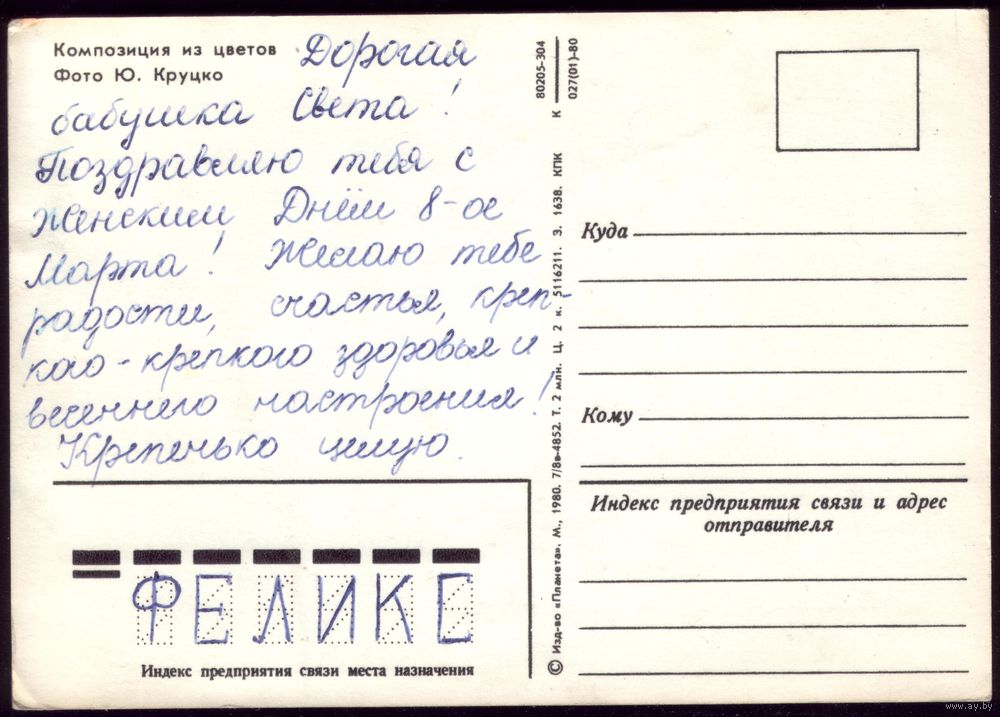 Композиция из цветов
Фото Ю. Круцко
Дорогая
бабушка Света!
Поздравляю тебя с
Женским Днём 8-ое
Марта! Желаю тебе
радости, счастья, креп-
кого-крепкого здоровья и
весеннего настроения!
Крепенько целую.
ФЕЛИКС
Индекс предприятия связи места назначения
© Изд-во «Планета». М., 1980. 7/8в-4852. Т. 2 млн. Ц. 2 к. 5116211. З. 1638. КПК
К 80205-304
027(01)-80
Куда
Кому
Индекс предприятия связи и адрес
отправителя
www.ay.by